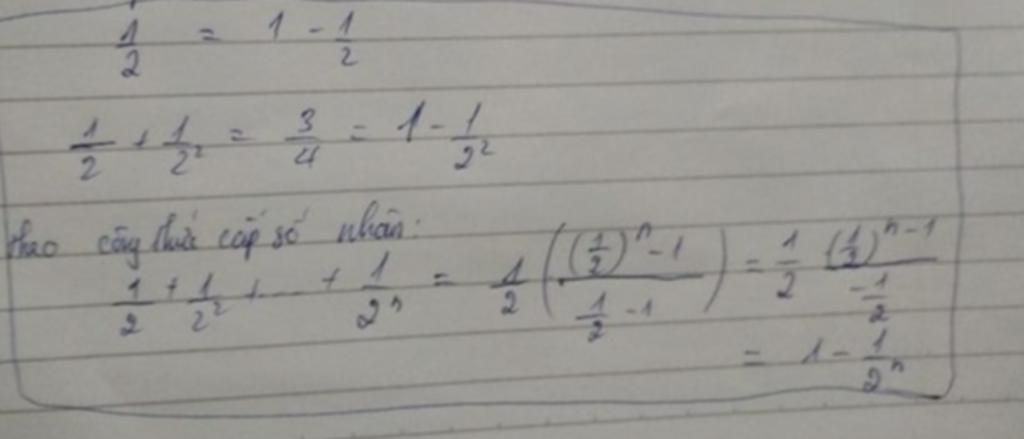 1/2 = 1 - 1/2
1/2 + 1/2² = 3/4 = 1 - 1/2²
theo công thức cấp số nhân:
1/2 + 1/2² + ... + 1/2ⁿ = 1/2 (((1/2)ⁿ - 1)/(1/2 - 1)) = 1/2 ((1/2)ⁿ - 1)/(-1/2)
= 1 - 1/2ⁿ